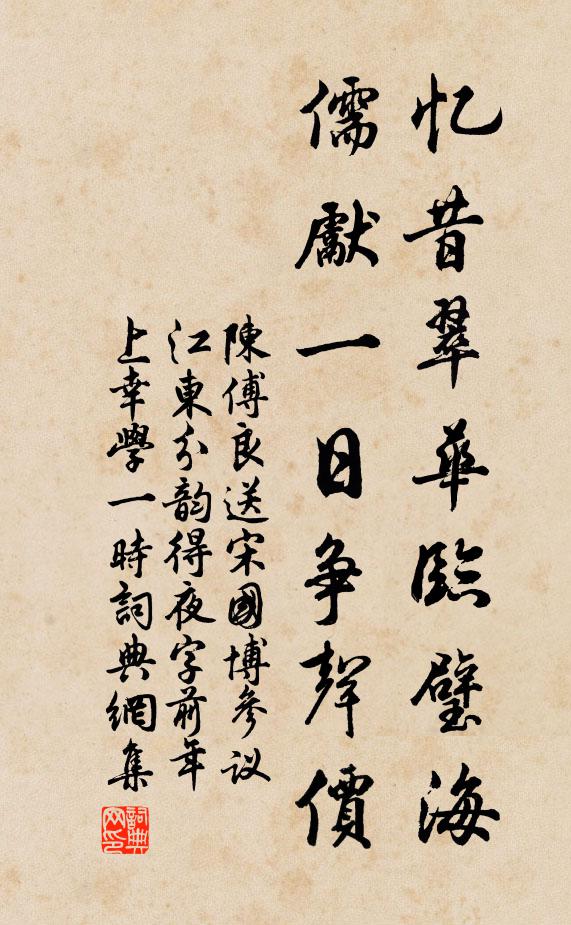 忆昔翠華臨璧海
儒獻一日争聲價
陳傅良送宋國博參议
江東分韵得夜字前年
上幸學一時詞典網集
詞典网印